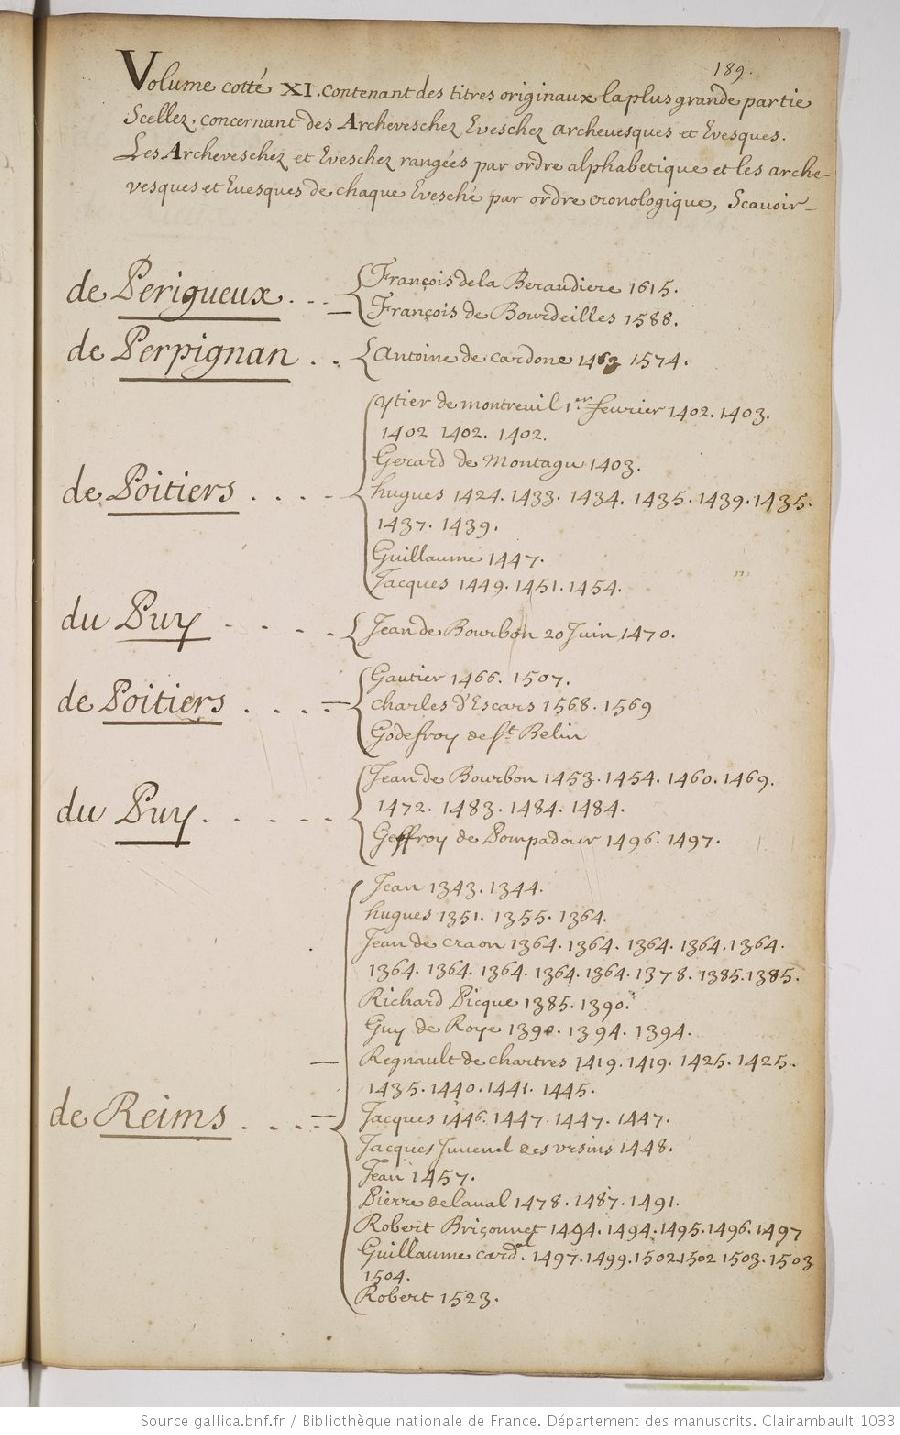 189.
Volume cotté XI. contenant des titres originaux la plus grande partie
Scellez. concernant des Archeveschez Eveschez archevesques et Evesques.
Les Archeveschez et Eveschez rangées par ordre alphabetique et les arche-
vesques et Evesques de chaque Evesché par ordre cronologique, Scavoir_
de Perigueux . - - { François de la Beraudiere 1615.
François de Bourdeilles 1588.
de Perpignan . . { Antoine de cardone 1574.
de Poitiers . . . . { ytier de montreuil 1er feurier 1402. 1403.
1402 1402. 1402.
Gerard de Montagu 1403.
hugues 1424. 1433. 1434. 1435. 1439. 1435.
1437. 1439.
Guillaume 1447.
Jacques 1449. 1451. 1454.
du Puy . . . . { Jean de Bourbon 20 Juin 1470.
de Poitiers . . . { Gautier 1466. 1507.
charles d'Escars 1568. 1569
Godefroy de St Belin
du Puy . . . . . { Jean de Bourbon 1453. 1454. 1460. 1469.
1472. 1483. 1484. 1484.
Geffroy de Pompadour 1496. 1497.
de Reims . . . { Jean 1343. 1344.
hugues 1351. 1355. 1364.
Jean de craon 1364. 1364. 1364. 1364. 1364.
1364. 1364. 1364. 1364. 1364. 1378. 1385. 1385.
Richard Picque 1385. 1390.
Guy de Roye 1390. 1394. 1394.
Regnault de chartres 1419. 1419. 1425. 1425.
1435. 1440. 1441. 1445.
Jacques 1446. 1447. 1447. 1447.
Jacques Juvenel des vrsins 1448.
Jean 1457.
Pierre de laval 1478. 1487. 1491.
Robert Briçonnet 1494. 1494. 1495. 1496. 1497
Guillaume card. 1497. 1499. 1502. 1502 1503. 1503
1504.
Robert 1523.
Source gallica.bnf.fr / Bibliothèque nationale de France. Département des manuscrits. Clairambault 1033